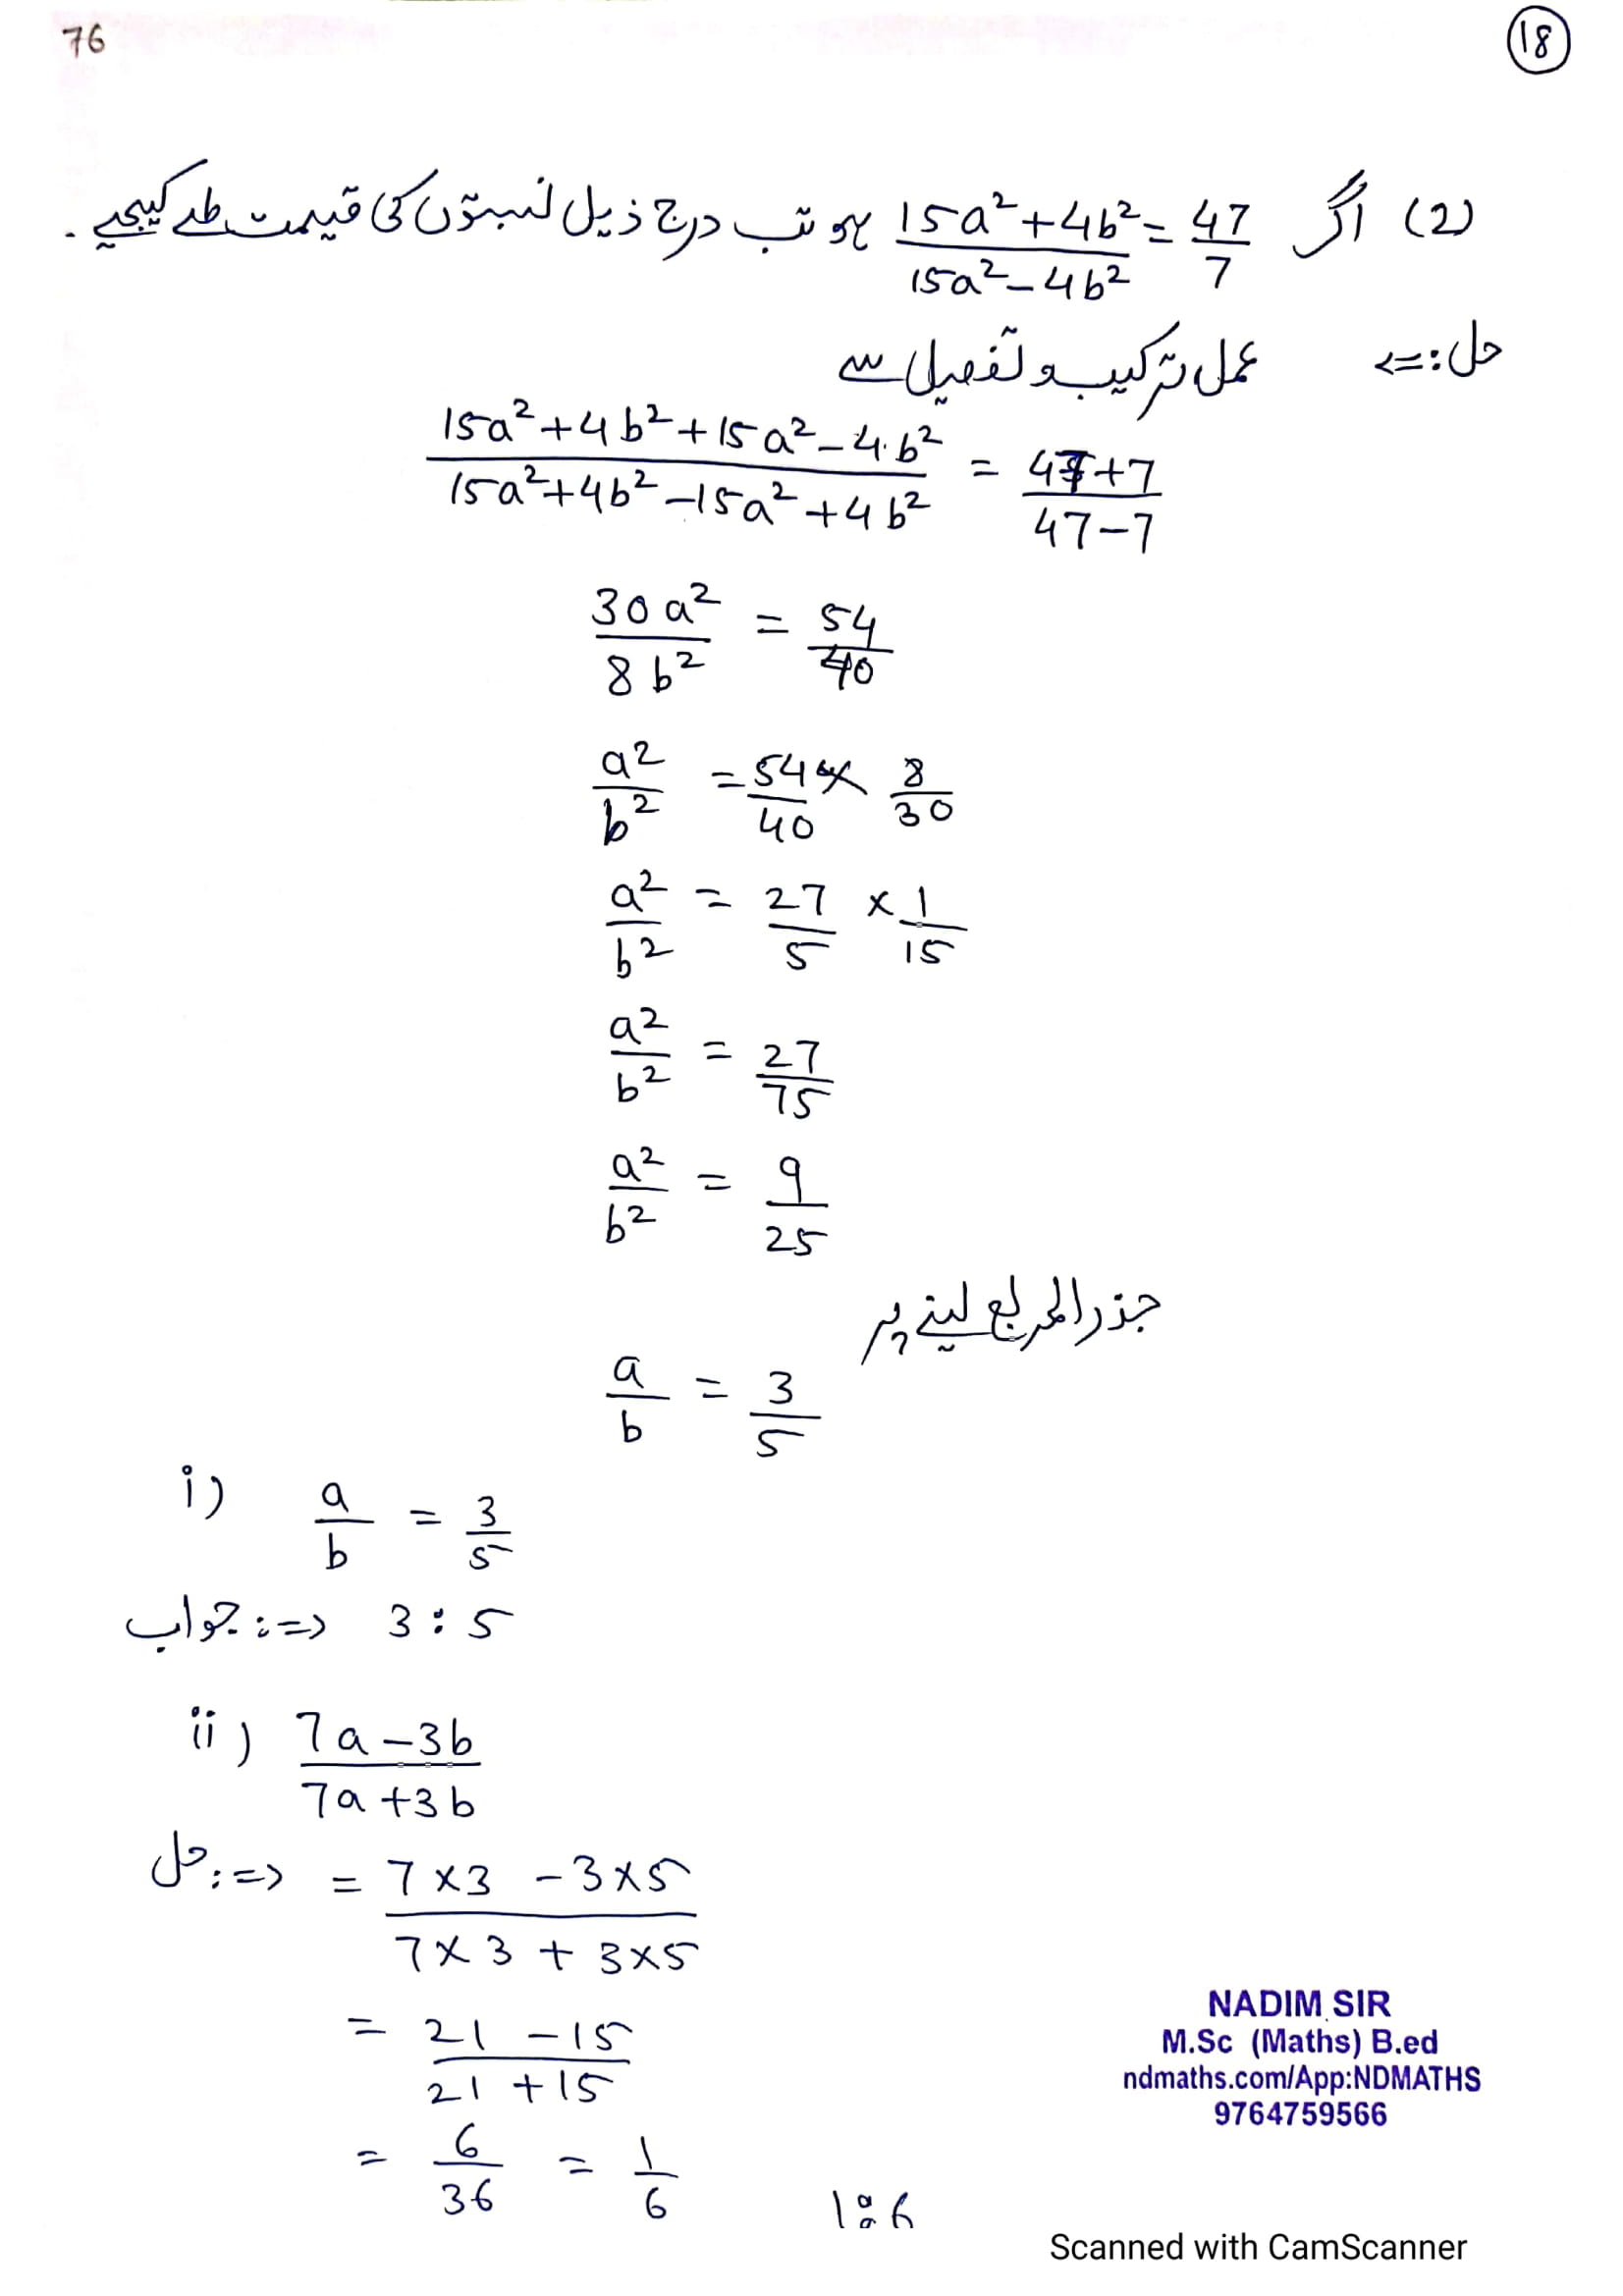 76
(18)
(2) اگر (15a²+4b²)/(15a²-4b²) = 47/7 ہو تب درج ذیل نسبتوں کی قیمت طے کیجیے۔
حل:⇐ عمل ترکیب و تفصیل سے
(15a²+4b²+15a²-4b²)/(15a²+4b²-15a²+4b²) = (47+7)/(47-7)
30a²/8b² = 54/40
a²/b² = 54/40 × 8/30
a²/b² = 27/5 × 1/15
a²/b² = 27/75
a²/b² = 9/25
جذرالمربع لینے پر
a/b = 3/5
i) a/b = 3/5
جواب:⇒ 3:5
ii) (7a-3b)/(7a+3b)
حل:⇒ = (7×3 - 3×5)/(7×3 + 3×5)
= (21-15)/(21+15)
= 6/36 = 1/6 1:6
NADIM SIR
M.Sc (Maths) B.ed
ndmaths.com/App:NDMATHS
9764759566
Scanned with CamScanner